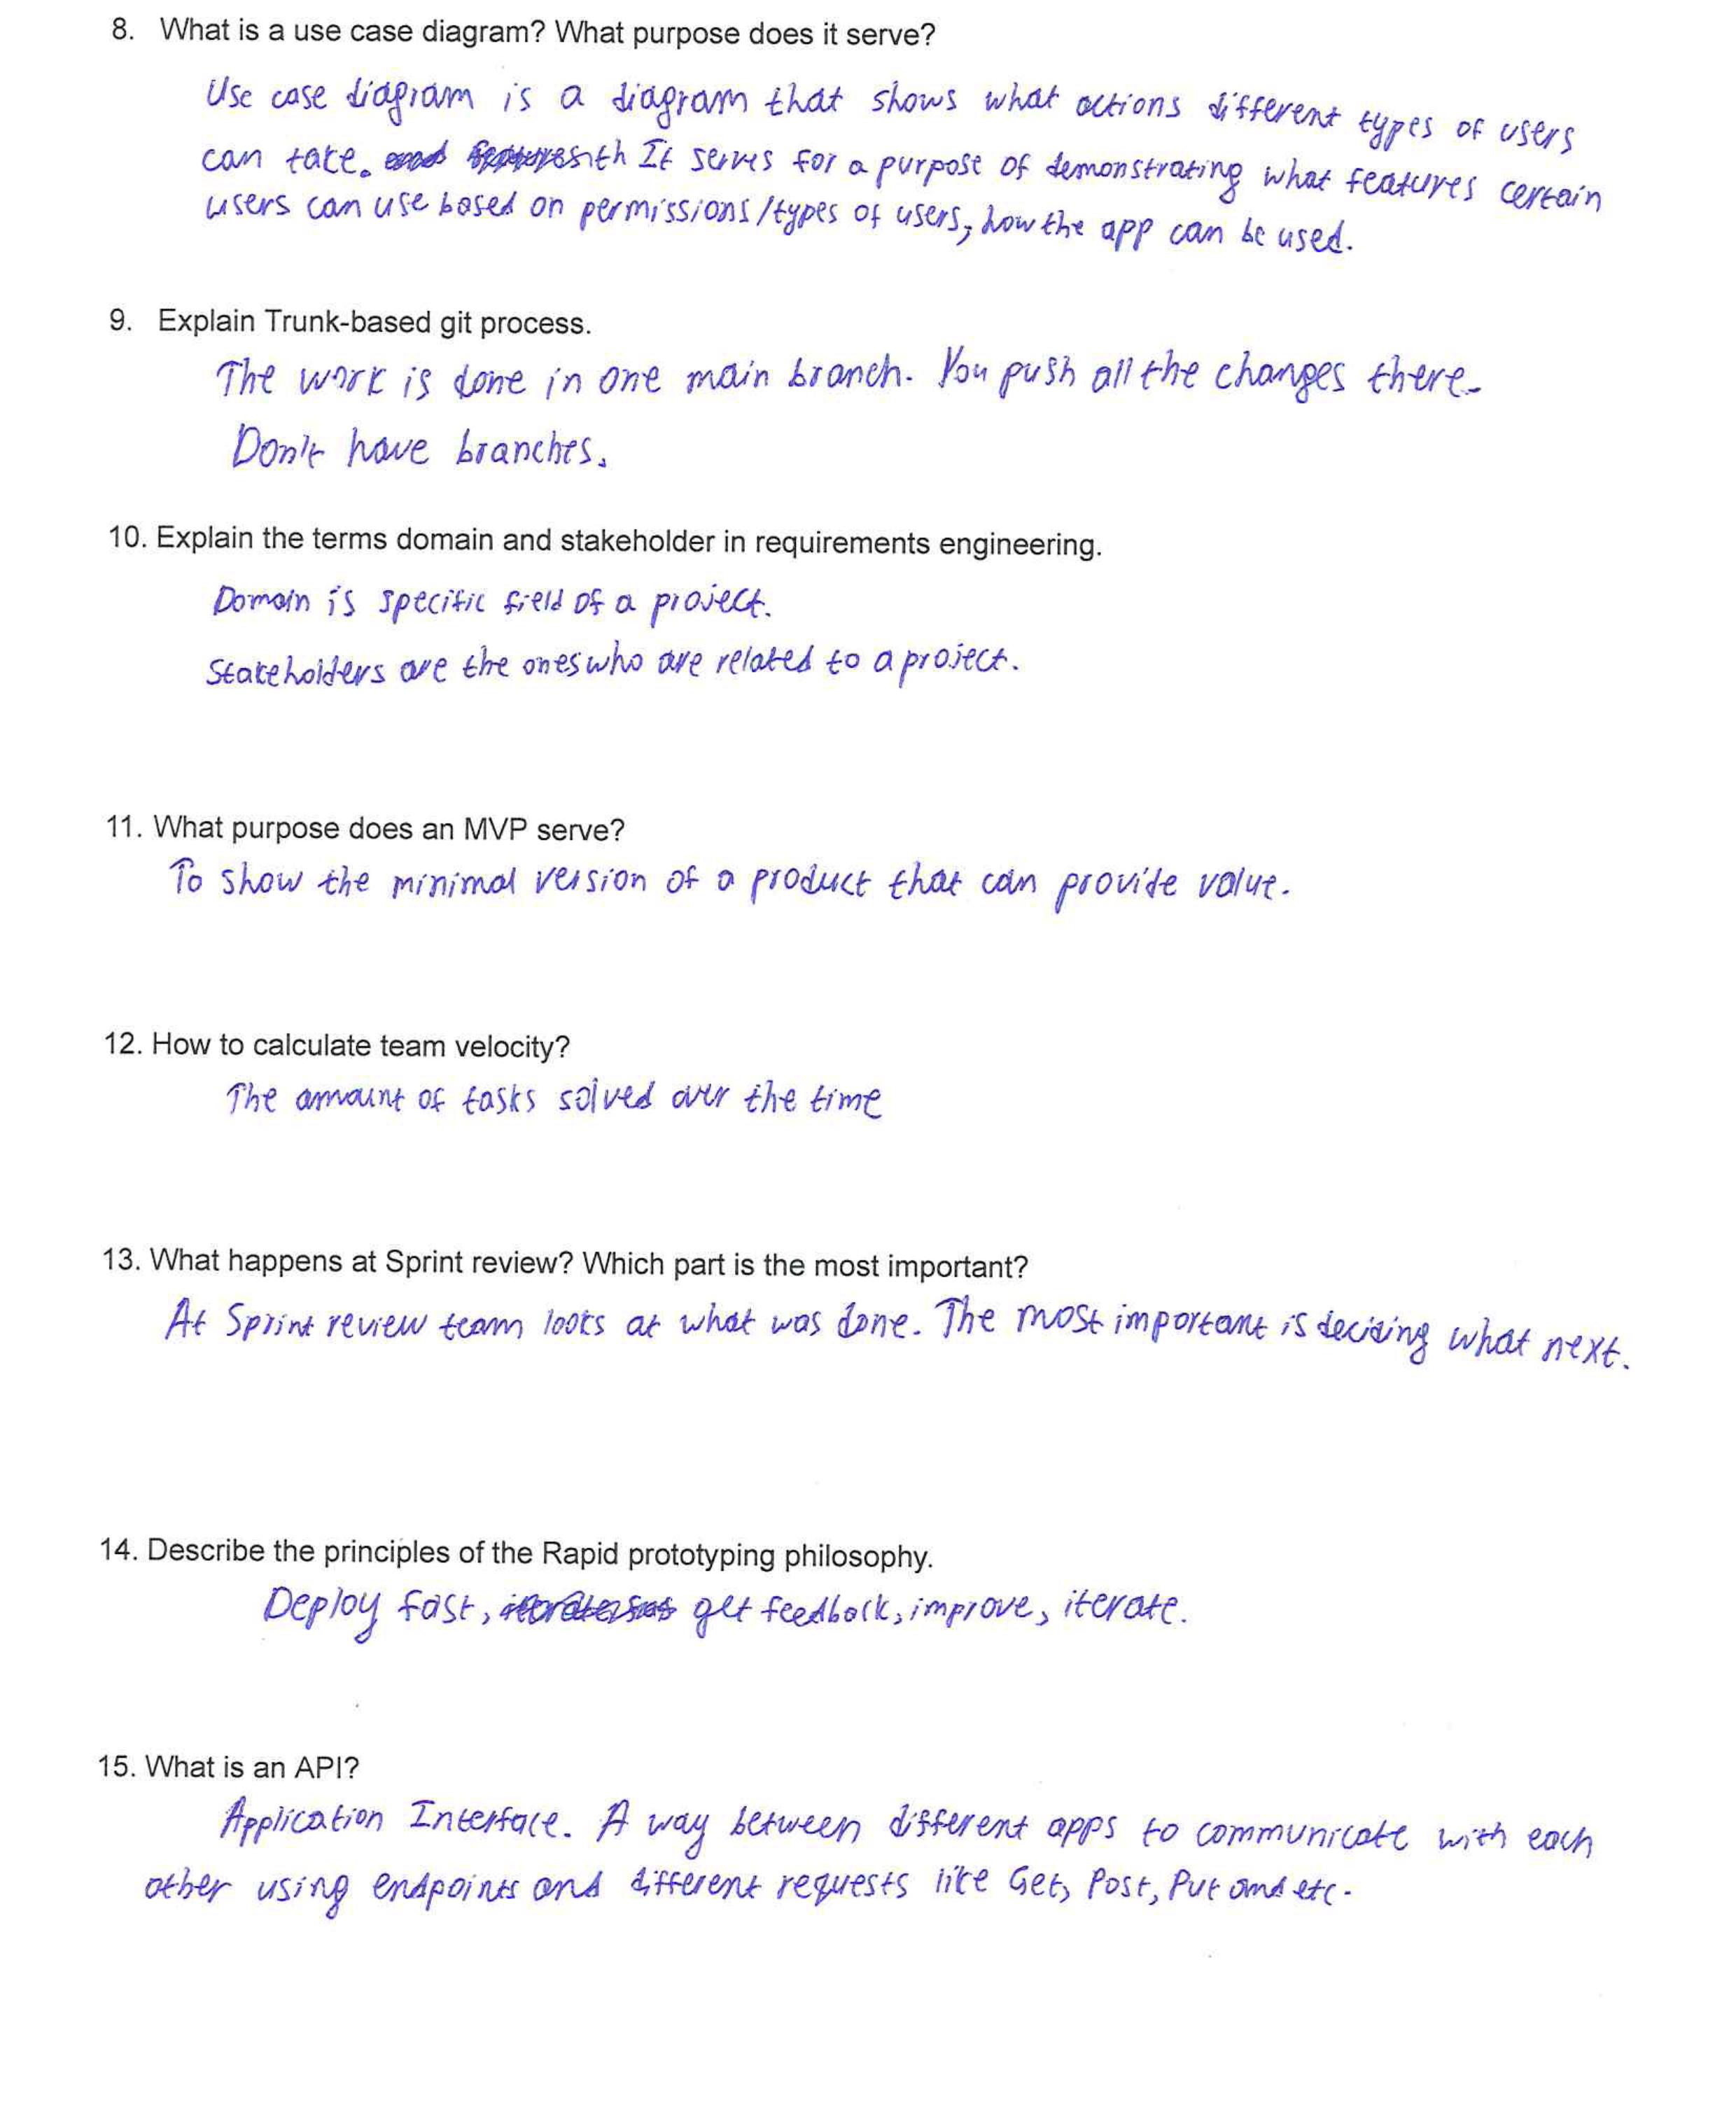 8. What is a use case diagram? What purpose does it serve?
Use case diagram is a diagram that shows what actions different types of users
can take. It serves for a purpose of demonstrating what features certain
users can use based on permissions/types of users, how the app can be used.
9. Explain Trunk-based git process.
The work is done in one main branch. You push all the changes there.
Don't have branches.
10. Explain the terms domain and stakeholder in requirements engineering.
Domain is specific field of a project.
Stakeholders are the ones who are related to a project.
11. What purpose does an MVP serve?
To show the minimal version of a product that can provide value.
12. How to calculate team velocity?
The amount of tasks solved over the time
13. What happens at Sprint review? Which part is the most important?
At Sprint review team looks at what was done. The most important is deciding what next.
14. Describe the principles of the Rapid prototyping philosophy.
Deploy fast, get feedback, improve, iterate.
15. What is an API?
Application Interface. A way between different apps to communicate with each
other using endpoints and different requests like Get, Post, Put and etc.